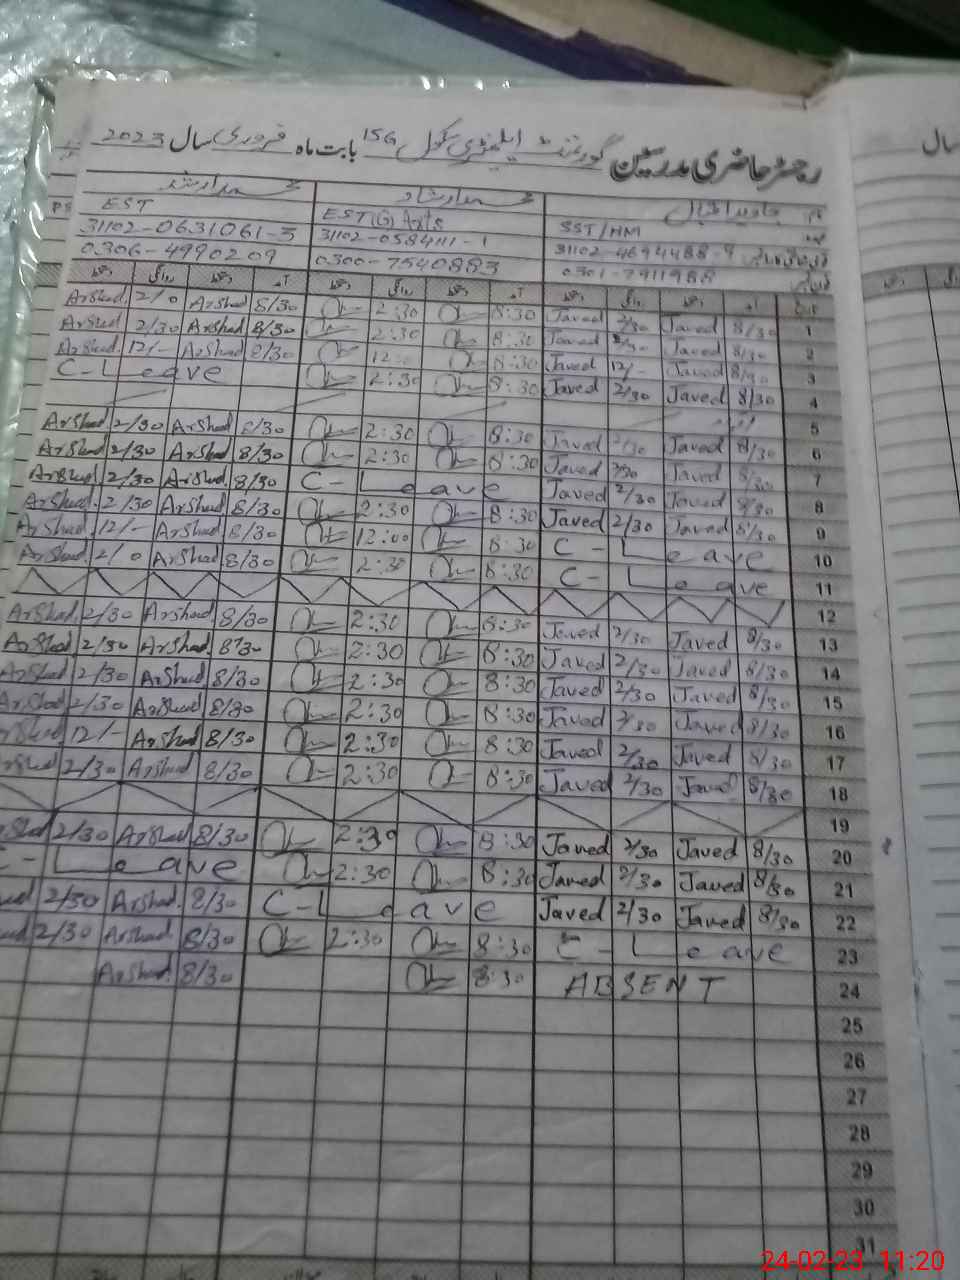 رجسٹر حاضری مدرسین گورنمنٹ ایلیمنٹری سکول 15G بابت ماہ فروری سال 2023
سال
جاوید اقبال محمد ارشاد محمد ارشد
SST/HM EST(G) Arts EST
31102-4694488-9 31102-0584111-1 31102-0631061-3
0301-7911988 0300-7540883 0306-4990209
Arshad 2/0 Arshad 8/30 2:30 8:30 Javed 2/30 Javed 8/30 1
Arshad 2/30 Arshad 8/30 2:30 8:30 Javed 2/30 Javed 8/30 2
Arshad 12/- Arshad 8/30 12:00 8:30 Javed 12/- Javed 8/30 3
C-Leave 2:30 8:30 Javed 2/30 Javed 8/30 4
5
Arshad 2/30 Arshad 8/30 2:30 8:30 Javed 2/30 Javed 8/30 6
Arshad 2/30 Arshad 8/30 2:30 8:30 Javed 2/30 Javed 8/30 7
Arshad 2/30 Arshad 8/30 C-Leave Javed 2/30 Javed 8/30 8
Arshad 2/30 Arshad 8/30 2:30 8:30 Javed 2/30 Javed 8/30 9
Arshad 12/- Arshad 8/30 12:00 8:30 C-Leave 10
Arshad 2/0 Arshad 8/30 2:30 8:30 C-Leave 11
12
Arshad 2/30 Arshad 8/30 2:30 8:30 Javed 2/30 Javed 8/30 13
Arshad 2/30 Arshad 8/30 2:30 8:30 Javed 2/30 Javed 8/30 14
Arshad 2/30 Arshad 8/30 2:30 8:30 Javed 2/30 Javed 8/30 15
Arshad 2/30 Arshad 8/30 2:30 8:30 Javed 2/30 Javed 8/30 16
Arshad 12/- Arshad 8/30 2:30 8:30 Javed 2/30 Javed 8/30 17
Arshad 2/30 Arshad 8/30 2:30 8:30 Javed 2/30 Javed 8/30 18
19
Arshad 2/30 Arshad 8/30 2:30 8:30 Javed 2/30 Javed 8/30 20
C-Leave 2:30 8:30 Javed 2/30 Javed 8/30 21
2/30 Arshad 8/30 C-Leave Javed 2/30 Javed 8/30 22
2/30 Arshad 8/30 2:30 8:30 C-Leave 23
Arshad 8/30 8:30 ABSENT 24
25
26
27
28
29
30
31
24-02-23 11:20